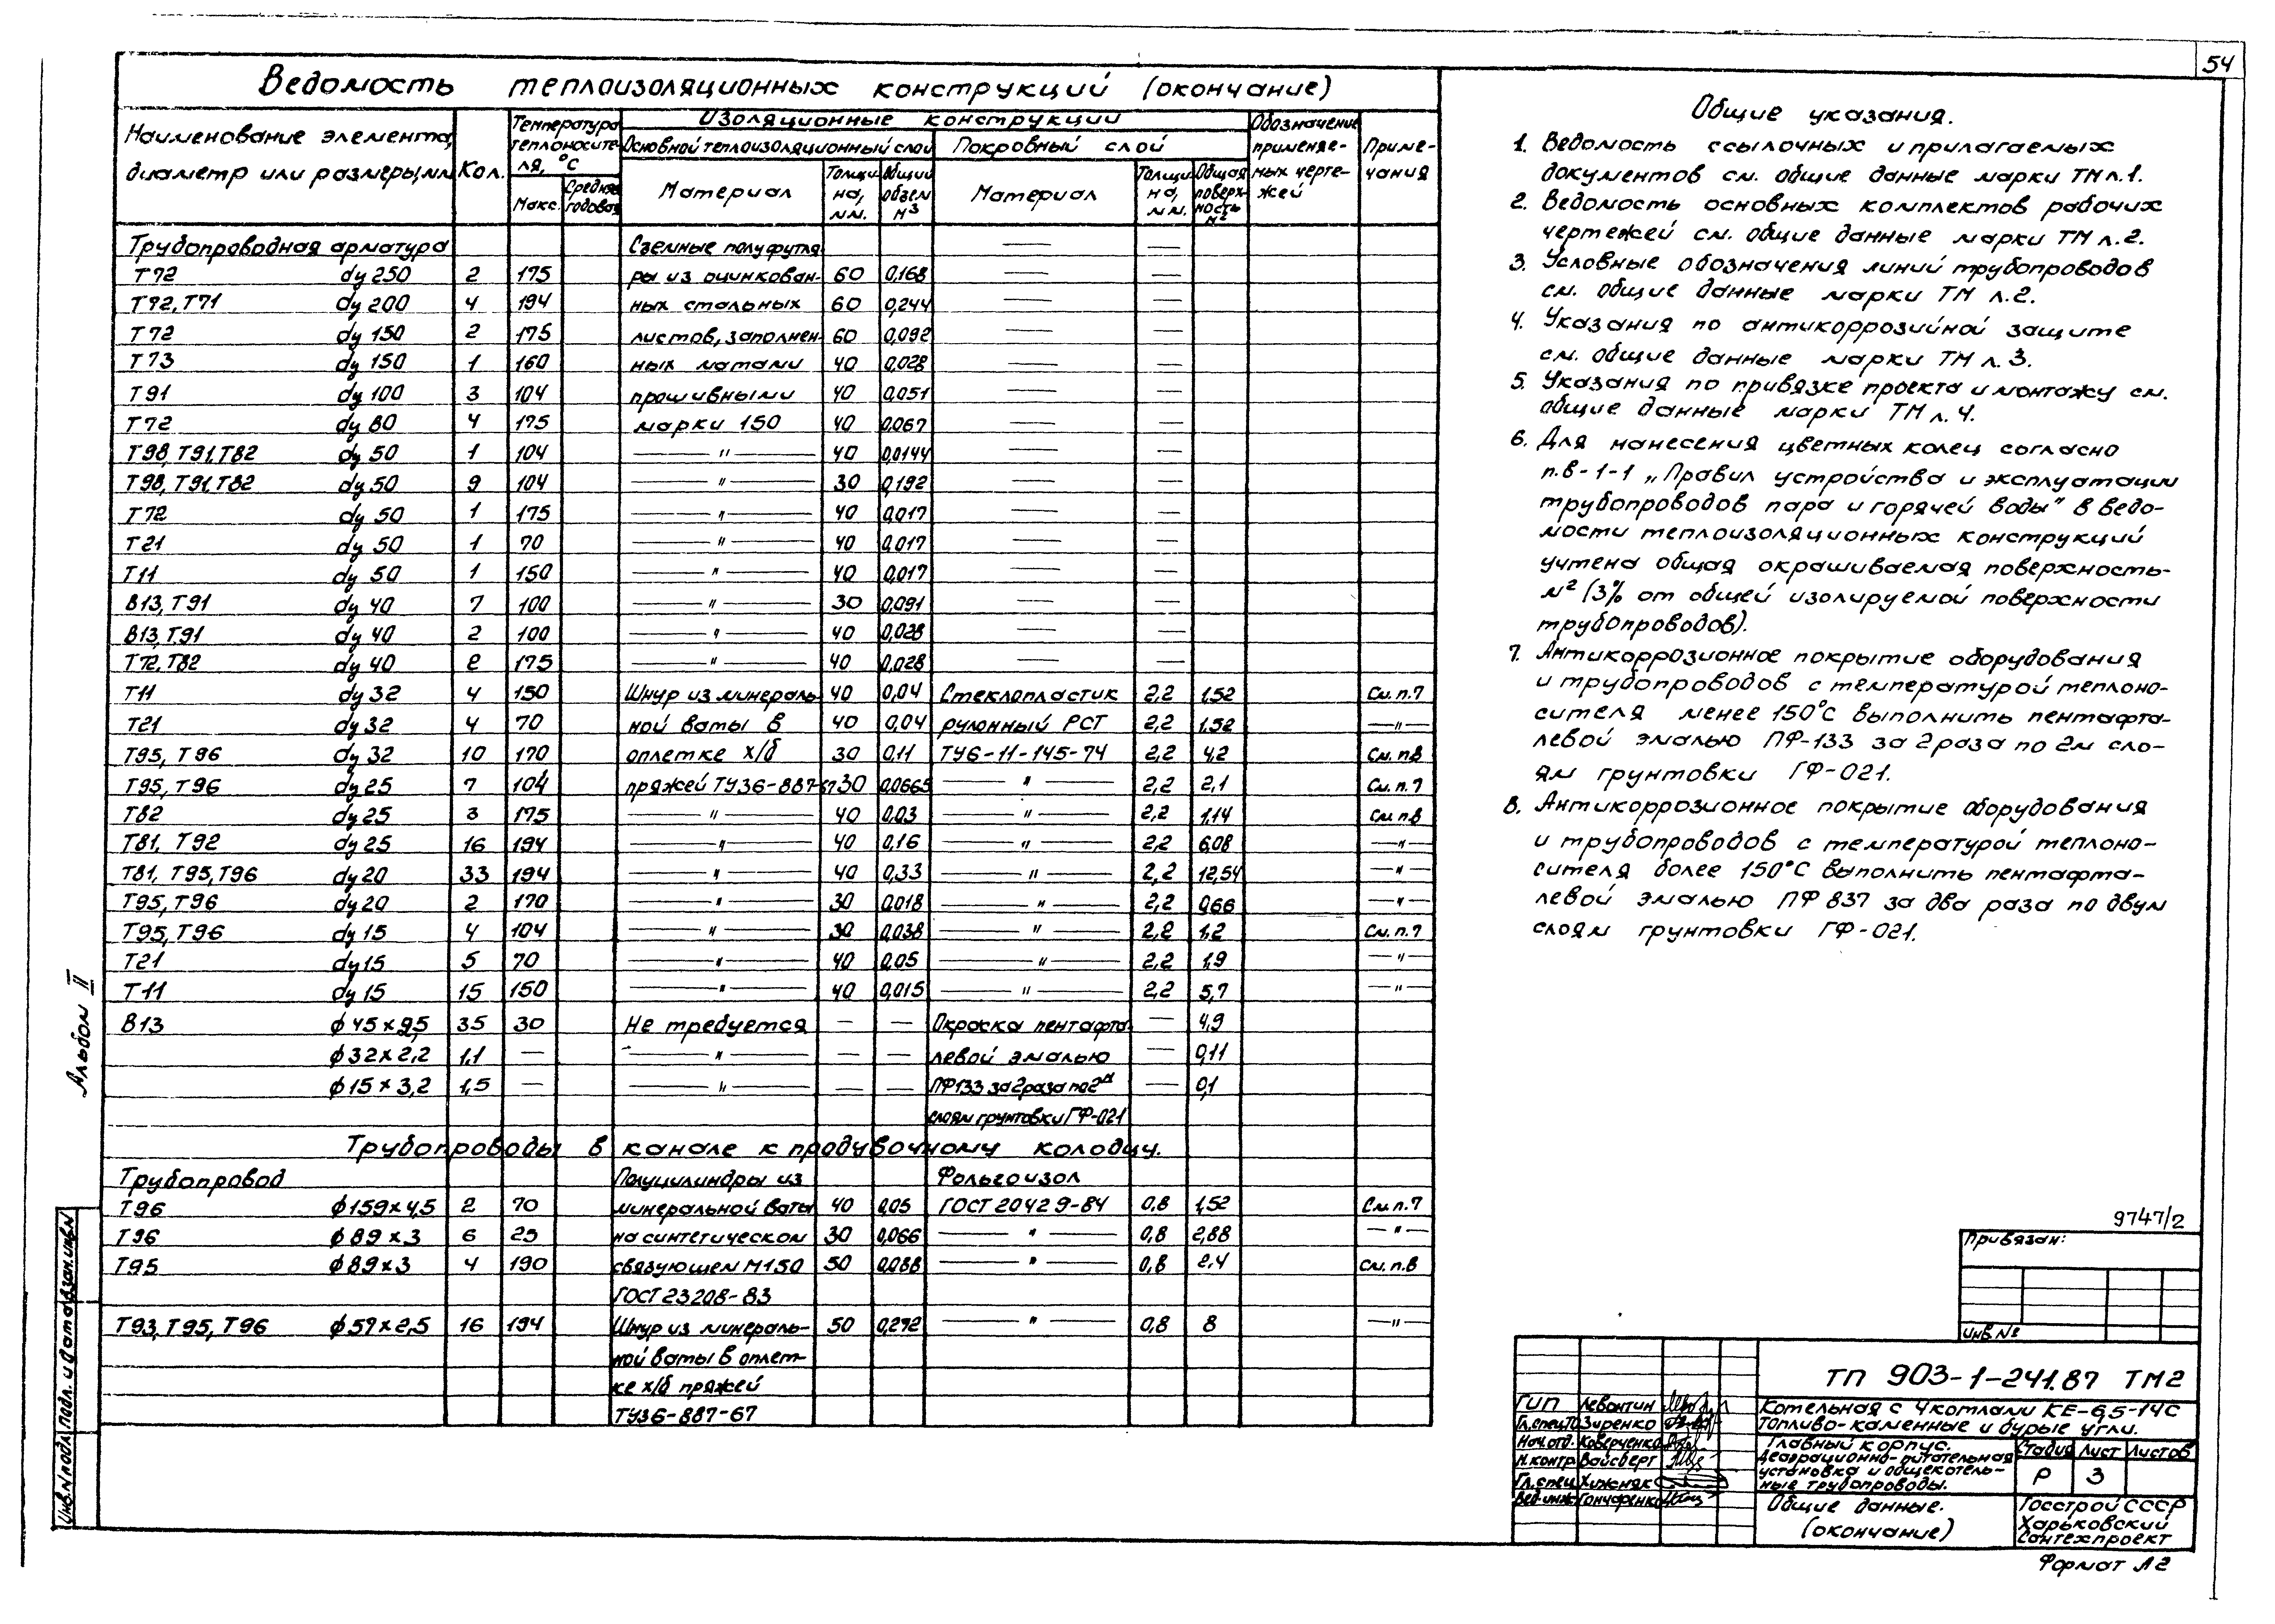 54
Ведомость теплоизоляционных конструкций (окончание)
Наименование элемента, диаметр или размеры, мм
Кол.
Температура теплоносителя, °С
Макс.
Среднегодовая
Изоляционные конструкции
Основной теплоизоляционный слой
Покровный слой
Материал
Толщина, мм.
Общий объем м3
Материал
Толщина, мм.
Общая поверхность м2
Обозначение применяемых чертежей
Примечания
Трубопроводная арматура Съемные полуфутля- — —
Т72 dy 250 2 175 ры из оцинкован- 60 0,168 — —
Т72, Т71 dy 200 4 194 ных стальных 60 0,244 — —
Т72 dy 150 2 175 листов, заполнен- 60 0,092 — —
Т73 dy 150 1 160 ных матами 40 0,028 — —
Т91 dy 100 3 104 прошивными 40 0,051 — —
Т72 dy 80 4 175 марки 150 40 0,067 — —
Т98, Т91, Т82 dy 50 1 104 —"— 40 0,0144 — —
Т98, Т91, Т82 dy 50 9 104 —"— 30 0,192 — —
Т72 dy 50 1 175 —"— 40 0,017 — —
Т21 dy 50 1 70 —"— 40 0,017 — —
Т11 dy 50 1 150 —"— 40 0,017 — —
В13, Т91 dy 40 7 100 —"— 30 0,091 — —
В13, Т91 dy 40 2 100 —"— 40 0,028 — —
Т72, Т82 dy 40 2 175 —"— 40 0,028 — —
Т11 dy 32 4 150 Шнур из минераль- 40 0,04 Стеклопластик 2,2 1,52 См. п.7
Т21 dy 32 4 70 ной ваты в 40 0,04 рулонный РСТ 2,2 1,52 —"—
Т95, Т96 dy 32 10 170 оплетке х/б 30 0,11 ТУ6-11-145-74 2,2 4,2 См. п.8
Т95, Т96 dy 25 7 104 пряжей ТУ36-887-67 30 0,0665 —"— 2,2 2,1 См. п.7
Т82 dy 25 3 175 —"— 40 0,03 —"— 2,2 1,14 См. п.8
Т81, Т92 dy 25 16 194 —"— 40 0,16 —"— 2,2 6,08 —"—
Т81, Т95, Т96 dy 20 33 194 —"— 40 0,33 —"— 2,2 12,54 —"—
Т95, Т96 dy 20 2 170 —"— 30 0,018 —"— 2,2 0,66 —"—
Т95, Т96 dy 15 4 104 —"— 30 0,038 —"— 2,2 1,2 См. п.7
Т21 dy 15 5 70 —"— 40 0,05 —"— 2,2 1,9 —"—
Т11 dy 15 15 150 —"— 40 0,015 —"— 2,2 5,7 —"—
В13 ϕ 45×2,5 35 30 Не требуется — — Окраска пентафта- — 4,9
ϕ 32×2,2 1,1 — —"— — — левой эмалью — 0,11
ϕ 15×3,2 1,5 — —"— — — ПФ133 за 2 раза по 2м — 0,1
слоям грунтовки ГФ-021
Трубопроводы в канале к продувочному колодцу.
Трубопровод Полуцилиндры из Фольгоизол
Т96 ϕ 159×4,5 2 70 минеральной ваты 40 0,05 ГОСТ 20429-84 0,8 1,52 См. п.7
Т96 ϕ 89×3 6 25 на синтетическом 30 0,066 —"— 0,8 2,88 —"—
Т95 ϕ 89×3 4 190 связующем М150 50 0,088 —"— 0,8 2,4 См. п.8
ГОСТ 23208-83
Т93, Т95, Т96 ϕ 57×2,5 16 194 Шнур из минераль- 50 0,272 —"— 0,8 8 —"—
ной ваты в оплет-
ке х/б пряжей
ТУ36-887-67
Общие указания.
1. Ведомость ссылочных и прилагаемых
документов см. общие данные марки ТМ л.1.
2. Ведомость основных комплектов рабочих
чертежей см. общие данные марки ТМ л.2.
3. Условные обозначения линий трубопроводов
см. общие данные марки ТМ л.2.
4. Указания по антикоррозийной защите
см. общие данные марки ТМ л.3.
5. Указания по привязке проекта и монтажу см.
общие данные марки ТМ л.4.
6. Для нанесения цветных колец согласно
п.8-1-1 „Правил устройства и эксплуатации
трубопроводов пара и горячей воды" в ведо-
мости теплоизоляционных конструкций
учтена общая окрашиваемая поверхность-
м2 (3% от общей изолируемой поверхности
трубопроводов).
7. Антикоррозионное покрытие оборудования
и трубопроводов с температурой теплоно-
сителя менее 150°С выполнить пентафта-
левой эмалью ПФ-133 за 2 раза по 2м сло-
ям грунтовки ГФ-021.
8. Антикоррозионное покрытие оборудования
и трубопроводов с температурой теплоно-
сителя более 150°С выполнить пентафта-
левой эмалью ПФ 837 за два раза по двум
слоям грунтовки ГФ-021.
Альбом II
Инв.№подл. Подп. и дата Взам.инв.№
9747/2
Привязан:
Инв.№
ТП 903-1-241.87 ТМ2
Котельная с 4 котлами КЕ-6,5-14С
Топливо-каменные и бурые угли.
Главный корпус.
Деаэрационно-питательная
установка и общекотель-
ные трубопроводы.
Стадия Лист Листов
Р 3
Общие данные.
(окончание)
Госстрой СССР
Харьковский
Сантехпроект
ГИП Левонтин
Гл.спец.ТО Зиренко
Нач.отд. Коверченко
Н.контр. Вайсберг
Гл.спец. Хижняк
Вед.инж. Гончаренко
Формат А2